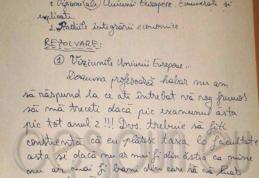 1. Viziunile Uniunii Europene. Enumerați și
explicați.
2. Etapele integrării economice.
REZOLVARE:
① Viziunile Uniunii Europene...
Doamna profesoară habar nu am
să răspund la ce ați întrebat vă rog frumos
să mă treceți dacă pic examenul asta
pic tot anul 2!!! Dvs. trebuie să fiți
conștientă că eu plătesc taxa la facultatea
asta și dacă nu ar mai fi din ăștia ca mine
nu ar mai fi bani din care să vă